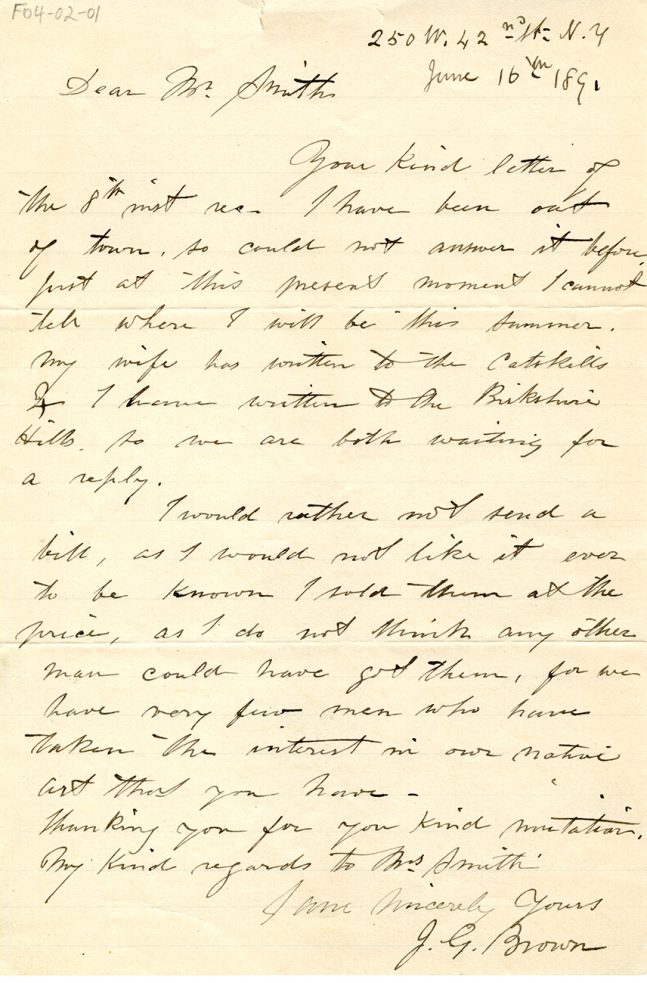 F04-02-01
250 W. 42nd St. N.Y
June 16th 1891
Dear Mr. Smith
Your kind letter of
the 8th inst rec. I have been out
of town, so could not answer it before,
just at this present moment I cannot
tell where I will be this summer.
My wife has written to the Catskills
& I have written to the Birkshire
Hills, so we are both waiting for
a reply.
I would rather not send a
bill, as I would not like it ever
to be known I sold them at the
price, as I do not think any other
man could have got them, for we
have very few men who have
taken the interest in our native
art that you have -
thanking you for you kind invitation.
My kind regards to Mrs Smith
I am Sincerely Yours
J. G. Brown